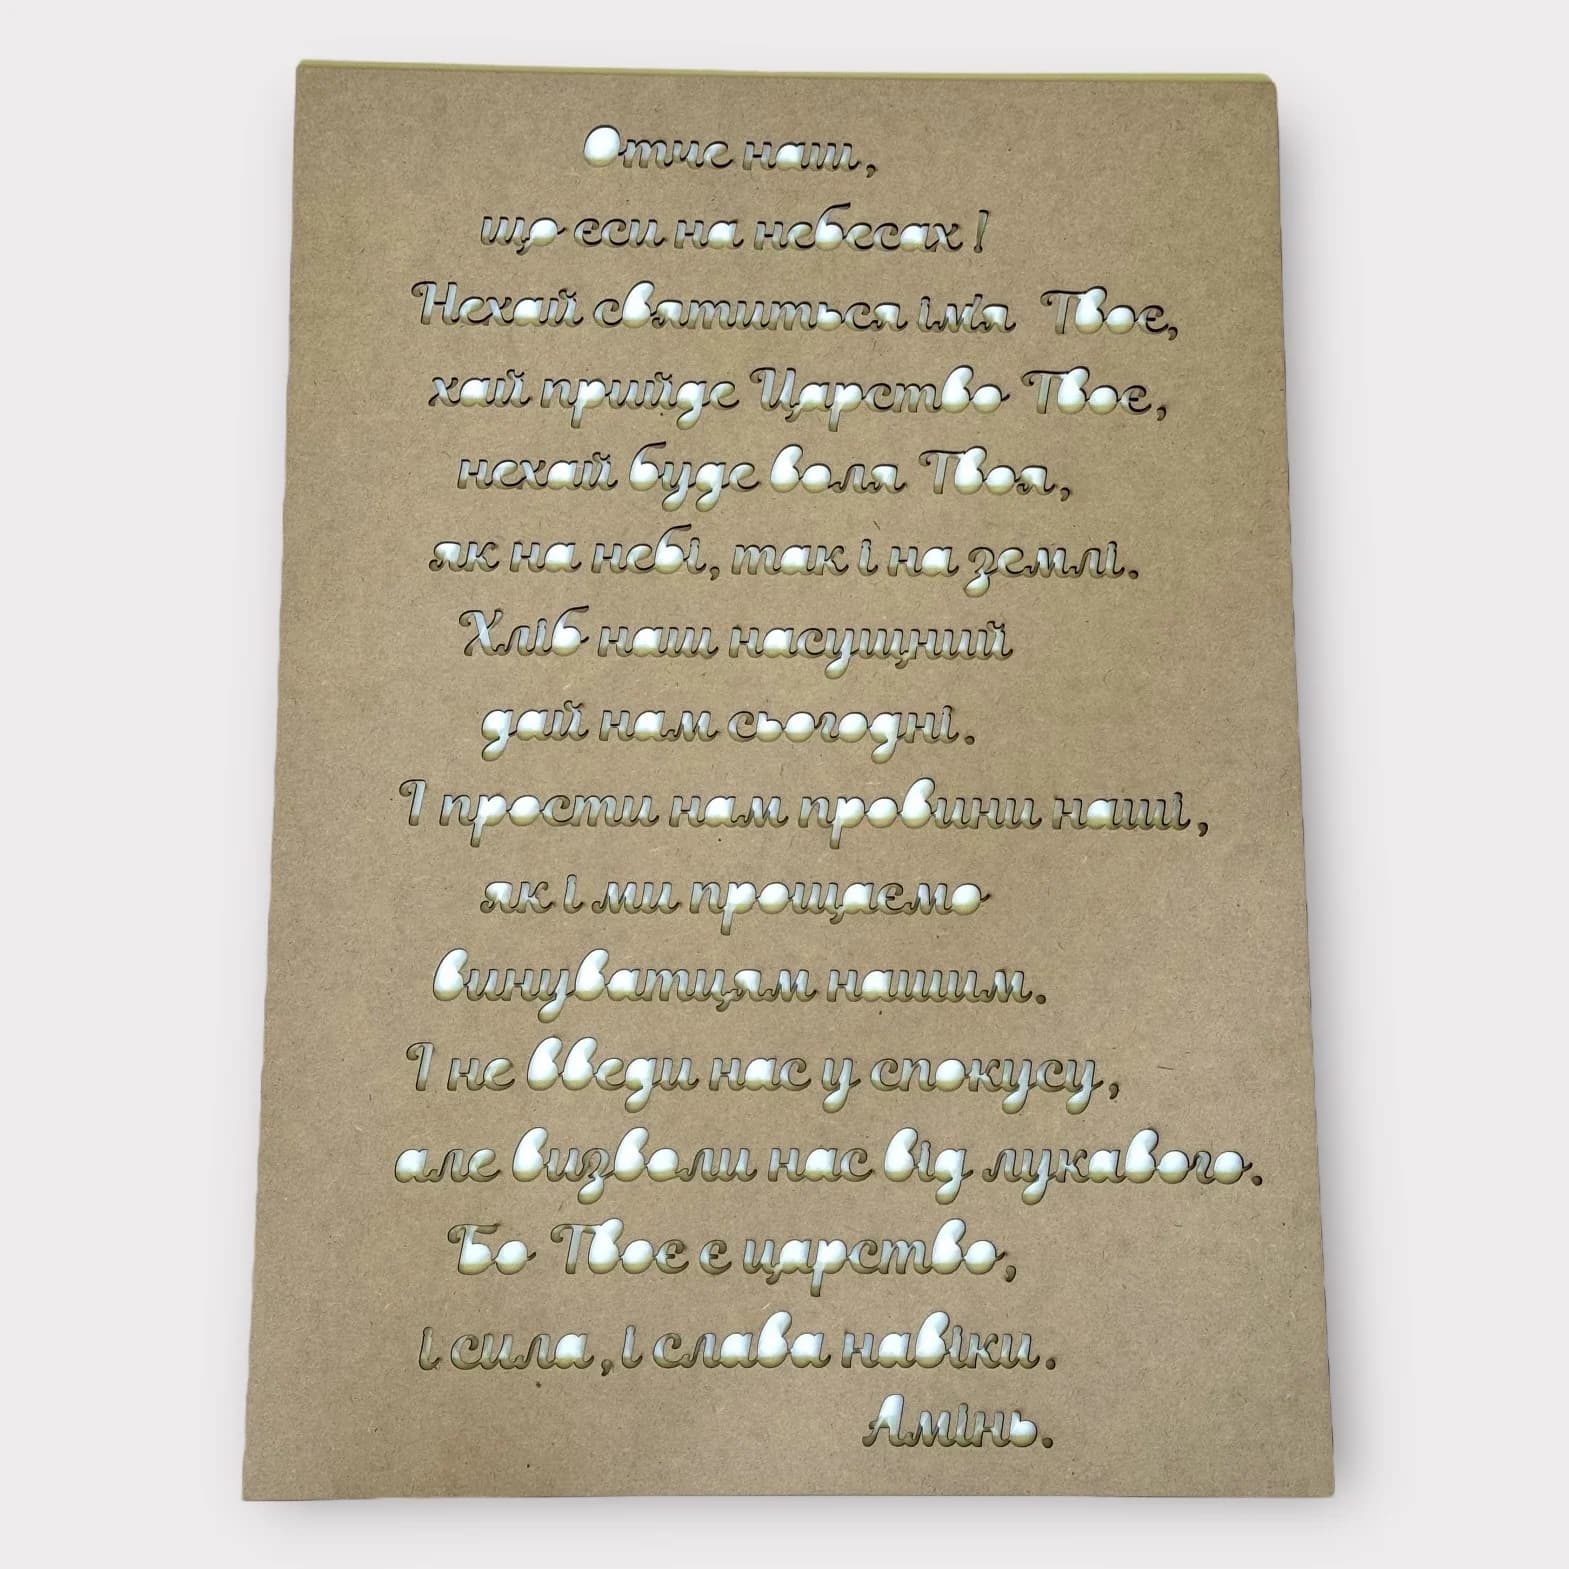 Отче наш,
що єси на небесах!
Нехай святиться ім'я Твоє,
хай прийде Царство Твоє,
нехай буде воля Твоя,
як на небі, так і на землі.
Хліб наш насущний
дай нам сьогодні.
І прости нам провини наші,
як і ми прощаємо
винуватцям нашим.
І не введи нас у спокусу,
але визволи нас від лукавого.
Бо Твоє є царство,
і сила, і слава навіки.
Амінь.